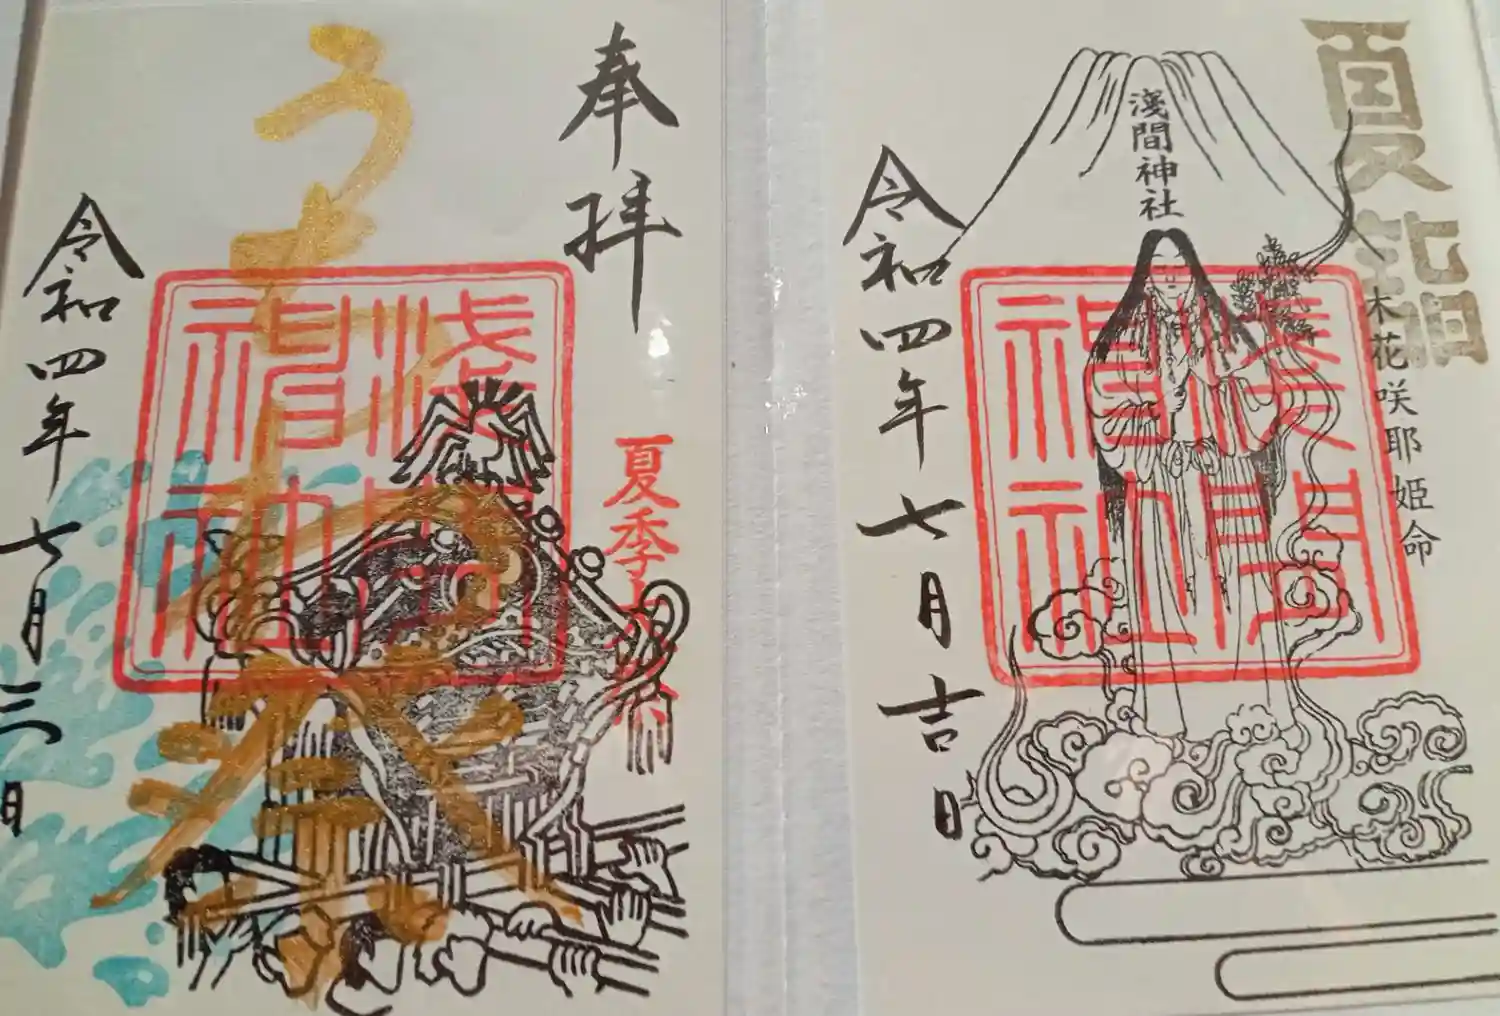 奉拝
夏季大祭
淺間神社
うちわ祭
令和四年七月三日
夏詣
木花咲耶姫命
淺間神社
淺間神社
令和四年七月吉日